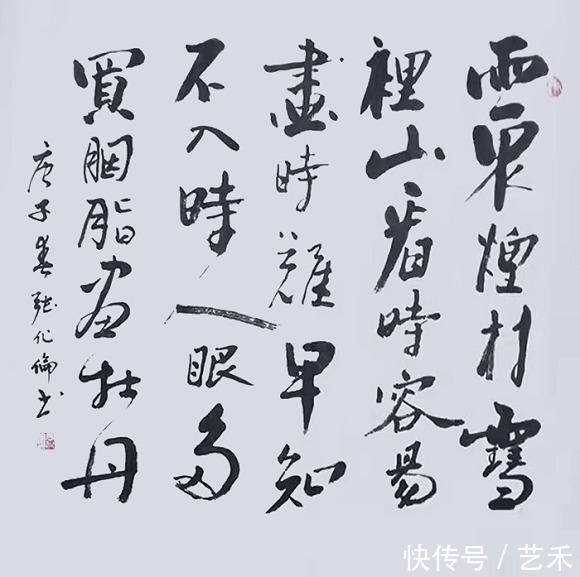 雨裏煙村雪
裡山看時容易
畫時難早知
不入時人眼多
買胭脂画牡丹
庚子春張化倫书
快传号 / 艺禾